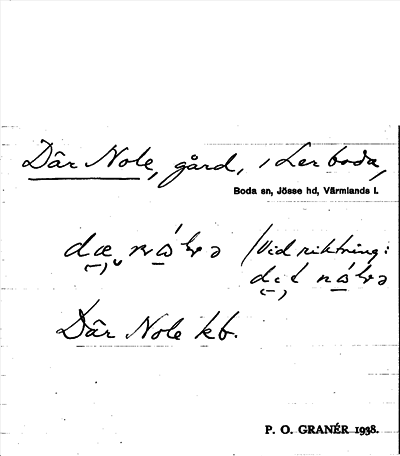 Där Nole, gård, i Lerboda,
Boda sn, Jösse hd, Värmlands l.
Vid riktning:
Där Nole kb.
P. O. GRANÉR 1938.